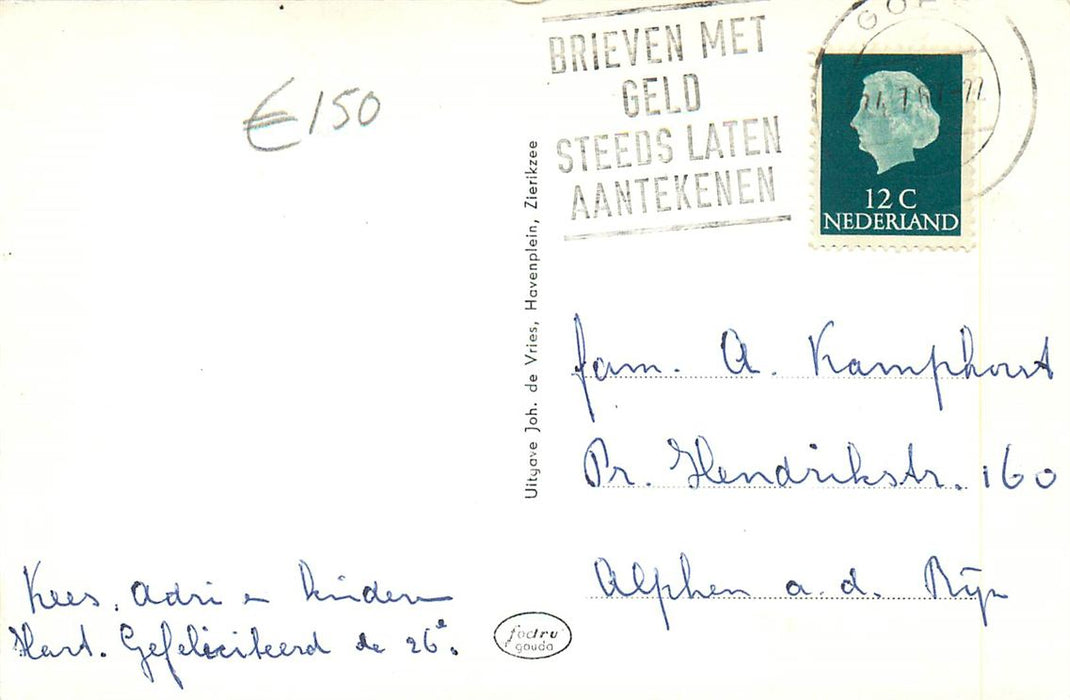 € 150
BRIEVEN MET
GELD
STEEDS LATEN
AANTEKENEN
12 C
NEDERLAND
Uitgave Joh. de Vries, Havenplein, Zierikzee
fam. A. Kamphorst
Pr. Hendrikstr. 160
Alphen a. d. Rijn
Kees, Adri en kinderen
Hart. Gefeliciteerd de 26e.
fodru
gouda